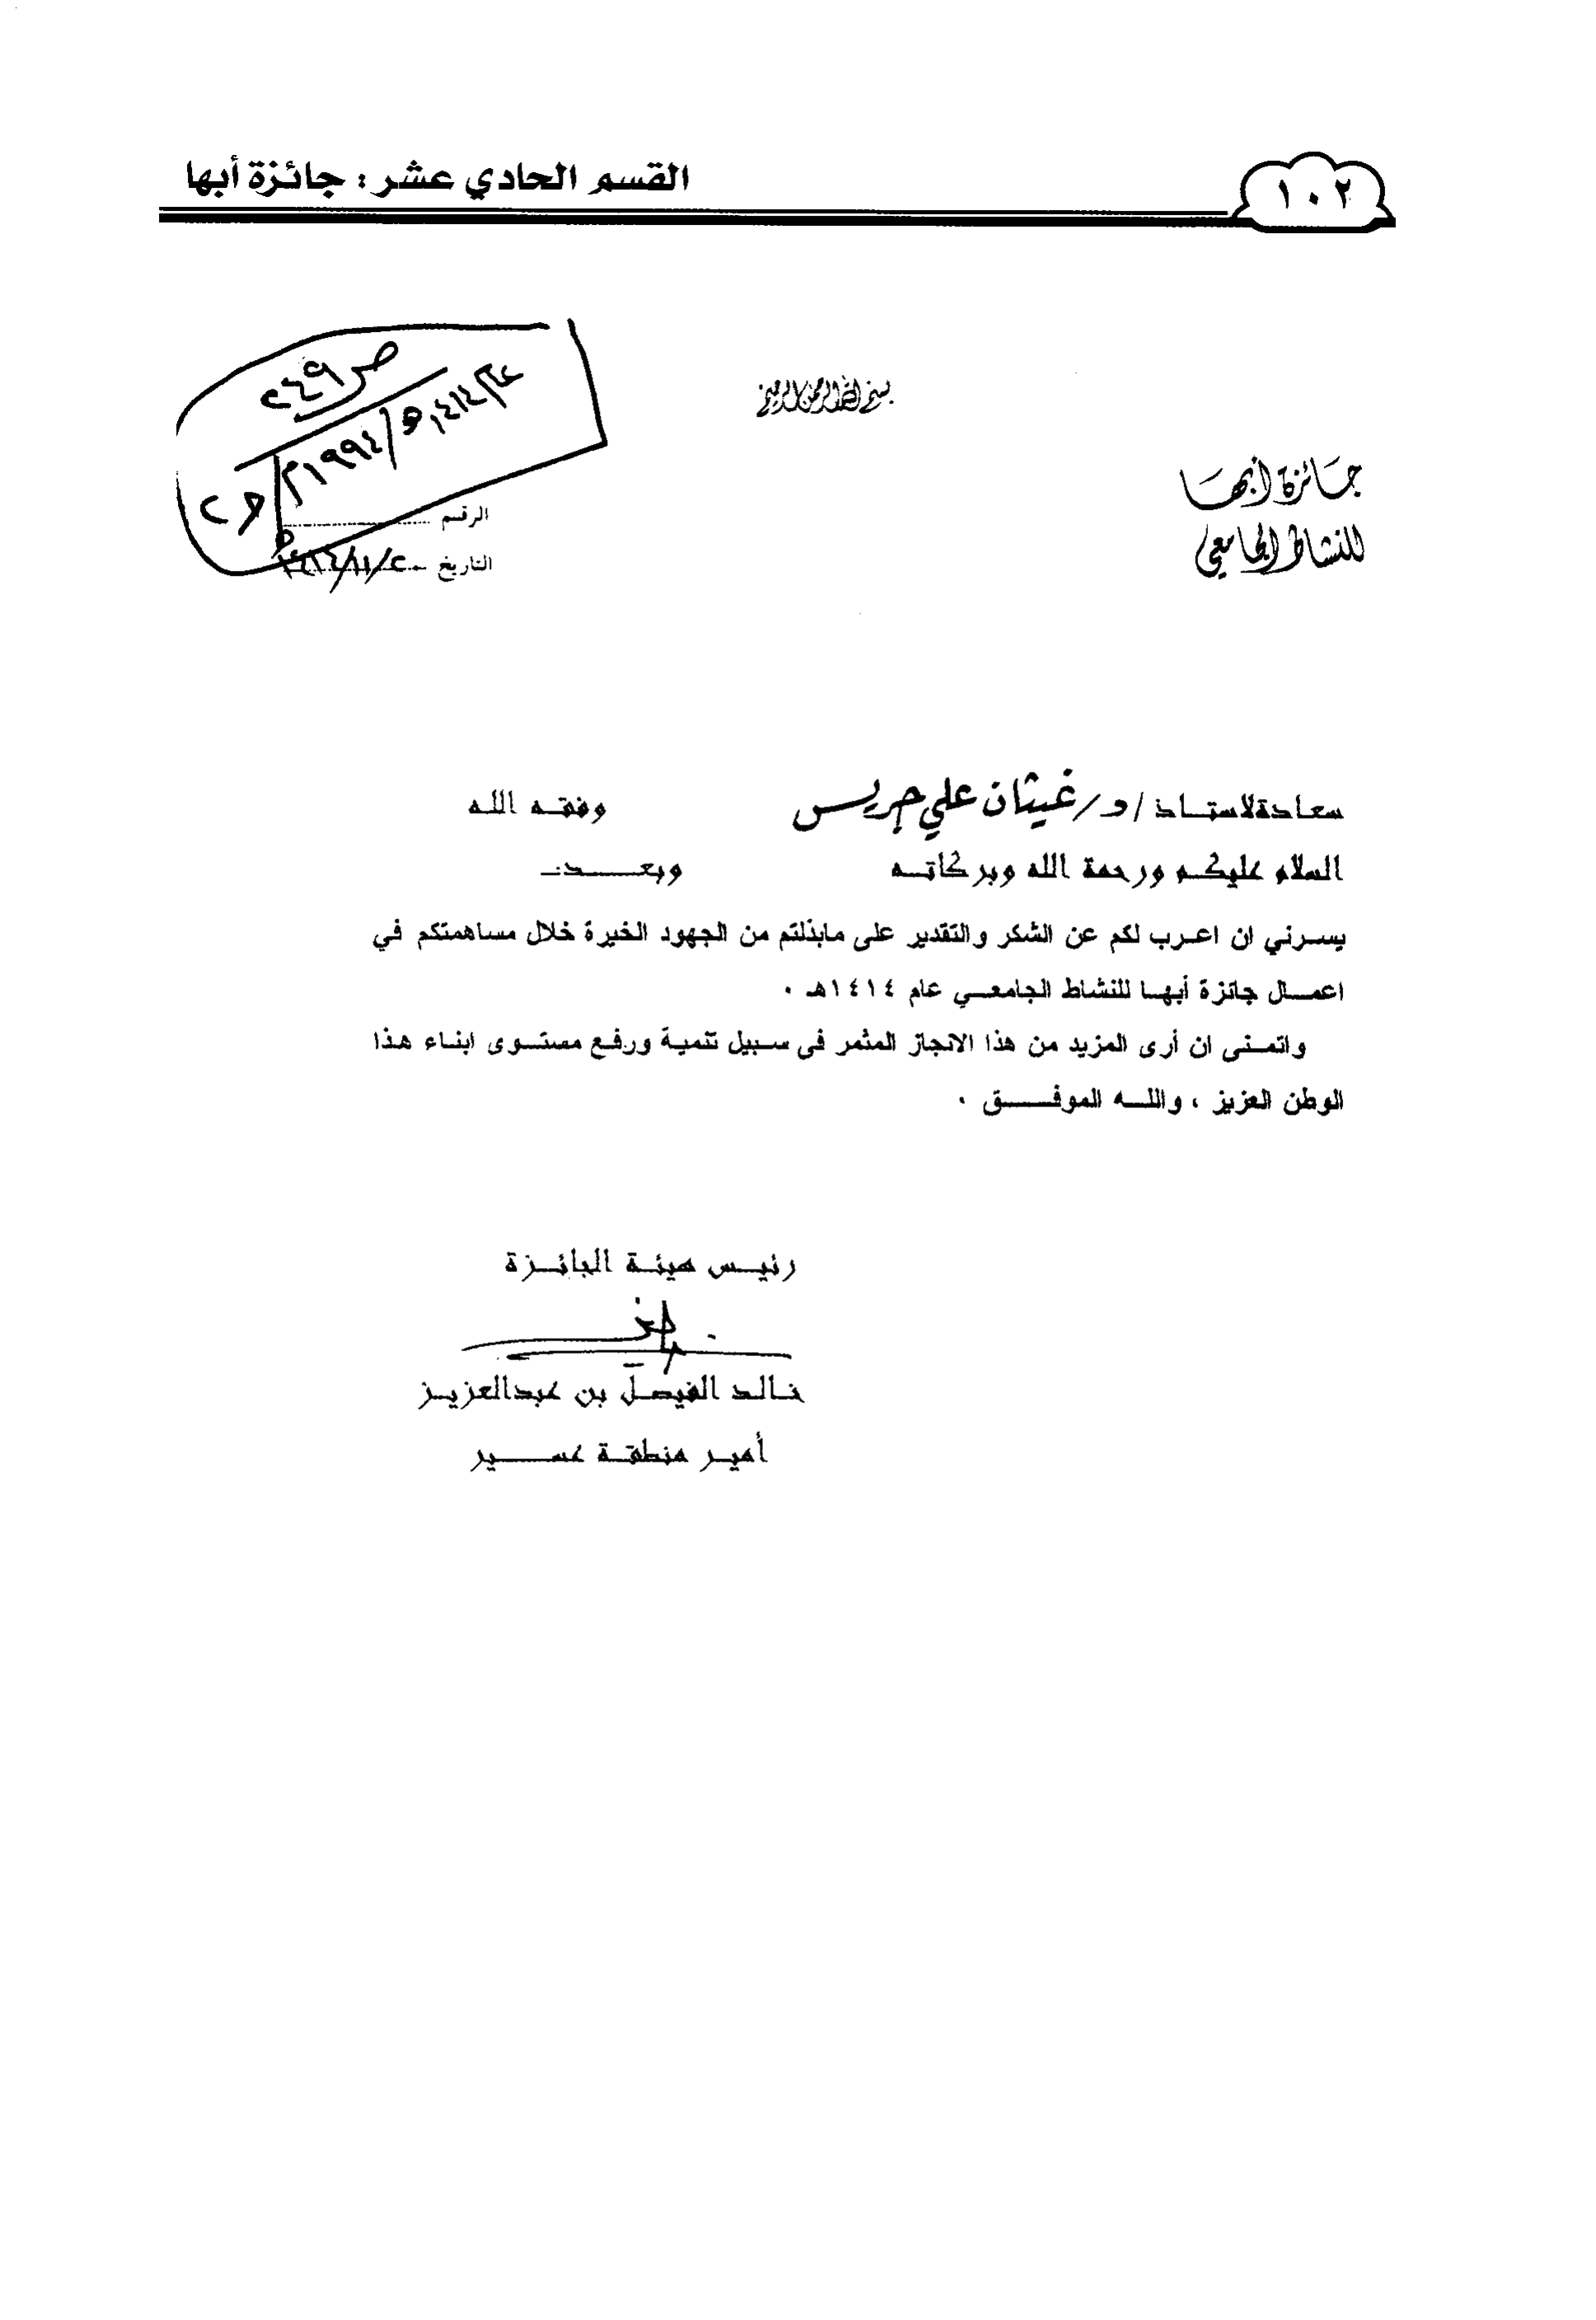 القسم الحادي عشر : جائزة أبها
١٠٢
بسم الله الرحمن الرحيم
جائزة أبها
للنشاط الجامعي
ص ٢٤٩
١٤١٤هـ/١٩٩٤م
الرقم
التاريخ ٢٠/١١/١٤١٤هـ
سعادة لاستاذ / د/ غيثان علي جريس وفقه الله
السلام عليكم ورحمة الله وبركاته وبعد:
يسرني ان اعرب لكم عن الشكر والتقدير على مابذلتم من الجهود الخيرة خلال مساهمتكم في
اعمال جائزة أبها للنشاط الجامعي عام ١٤١٤هـ .
واتمنى ان أرى المزيد من هذا الانجاز المثمر فى سبيل تنمية ورفع مستوى ابناء هذا
الوطن العزيز ، والله الموفق .
رئيس هيئة الجائزة
خالد الفيصل بن عبدالعزيز
أمير منطقة عسير